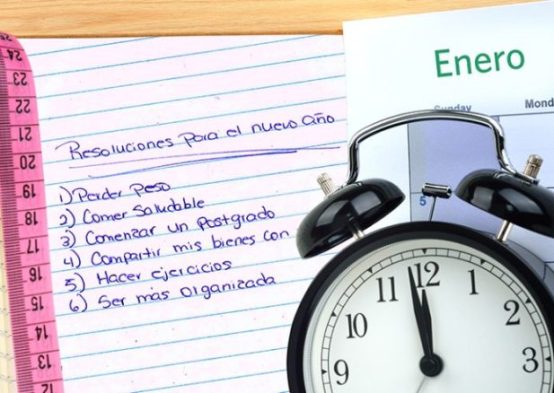 Enero
Sunday
Mond
5
Resoluciones para el nuevo año
1) Perder peso
2) Comer Saludable
3) Comenzar un Postgrado
4) Compartir mis bienes con
5) Hacer ejercicios
6) Ser mas organizada
24
23
22
21
20
19
18
17
16
15
14
13
12
11
12
1
10
2
9
3